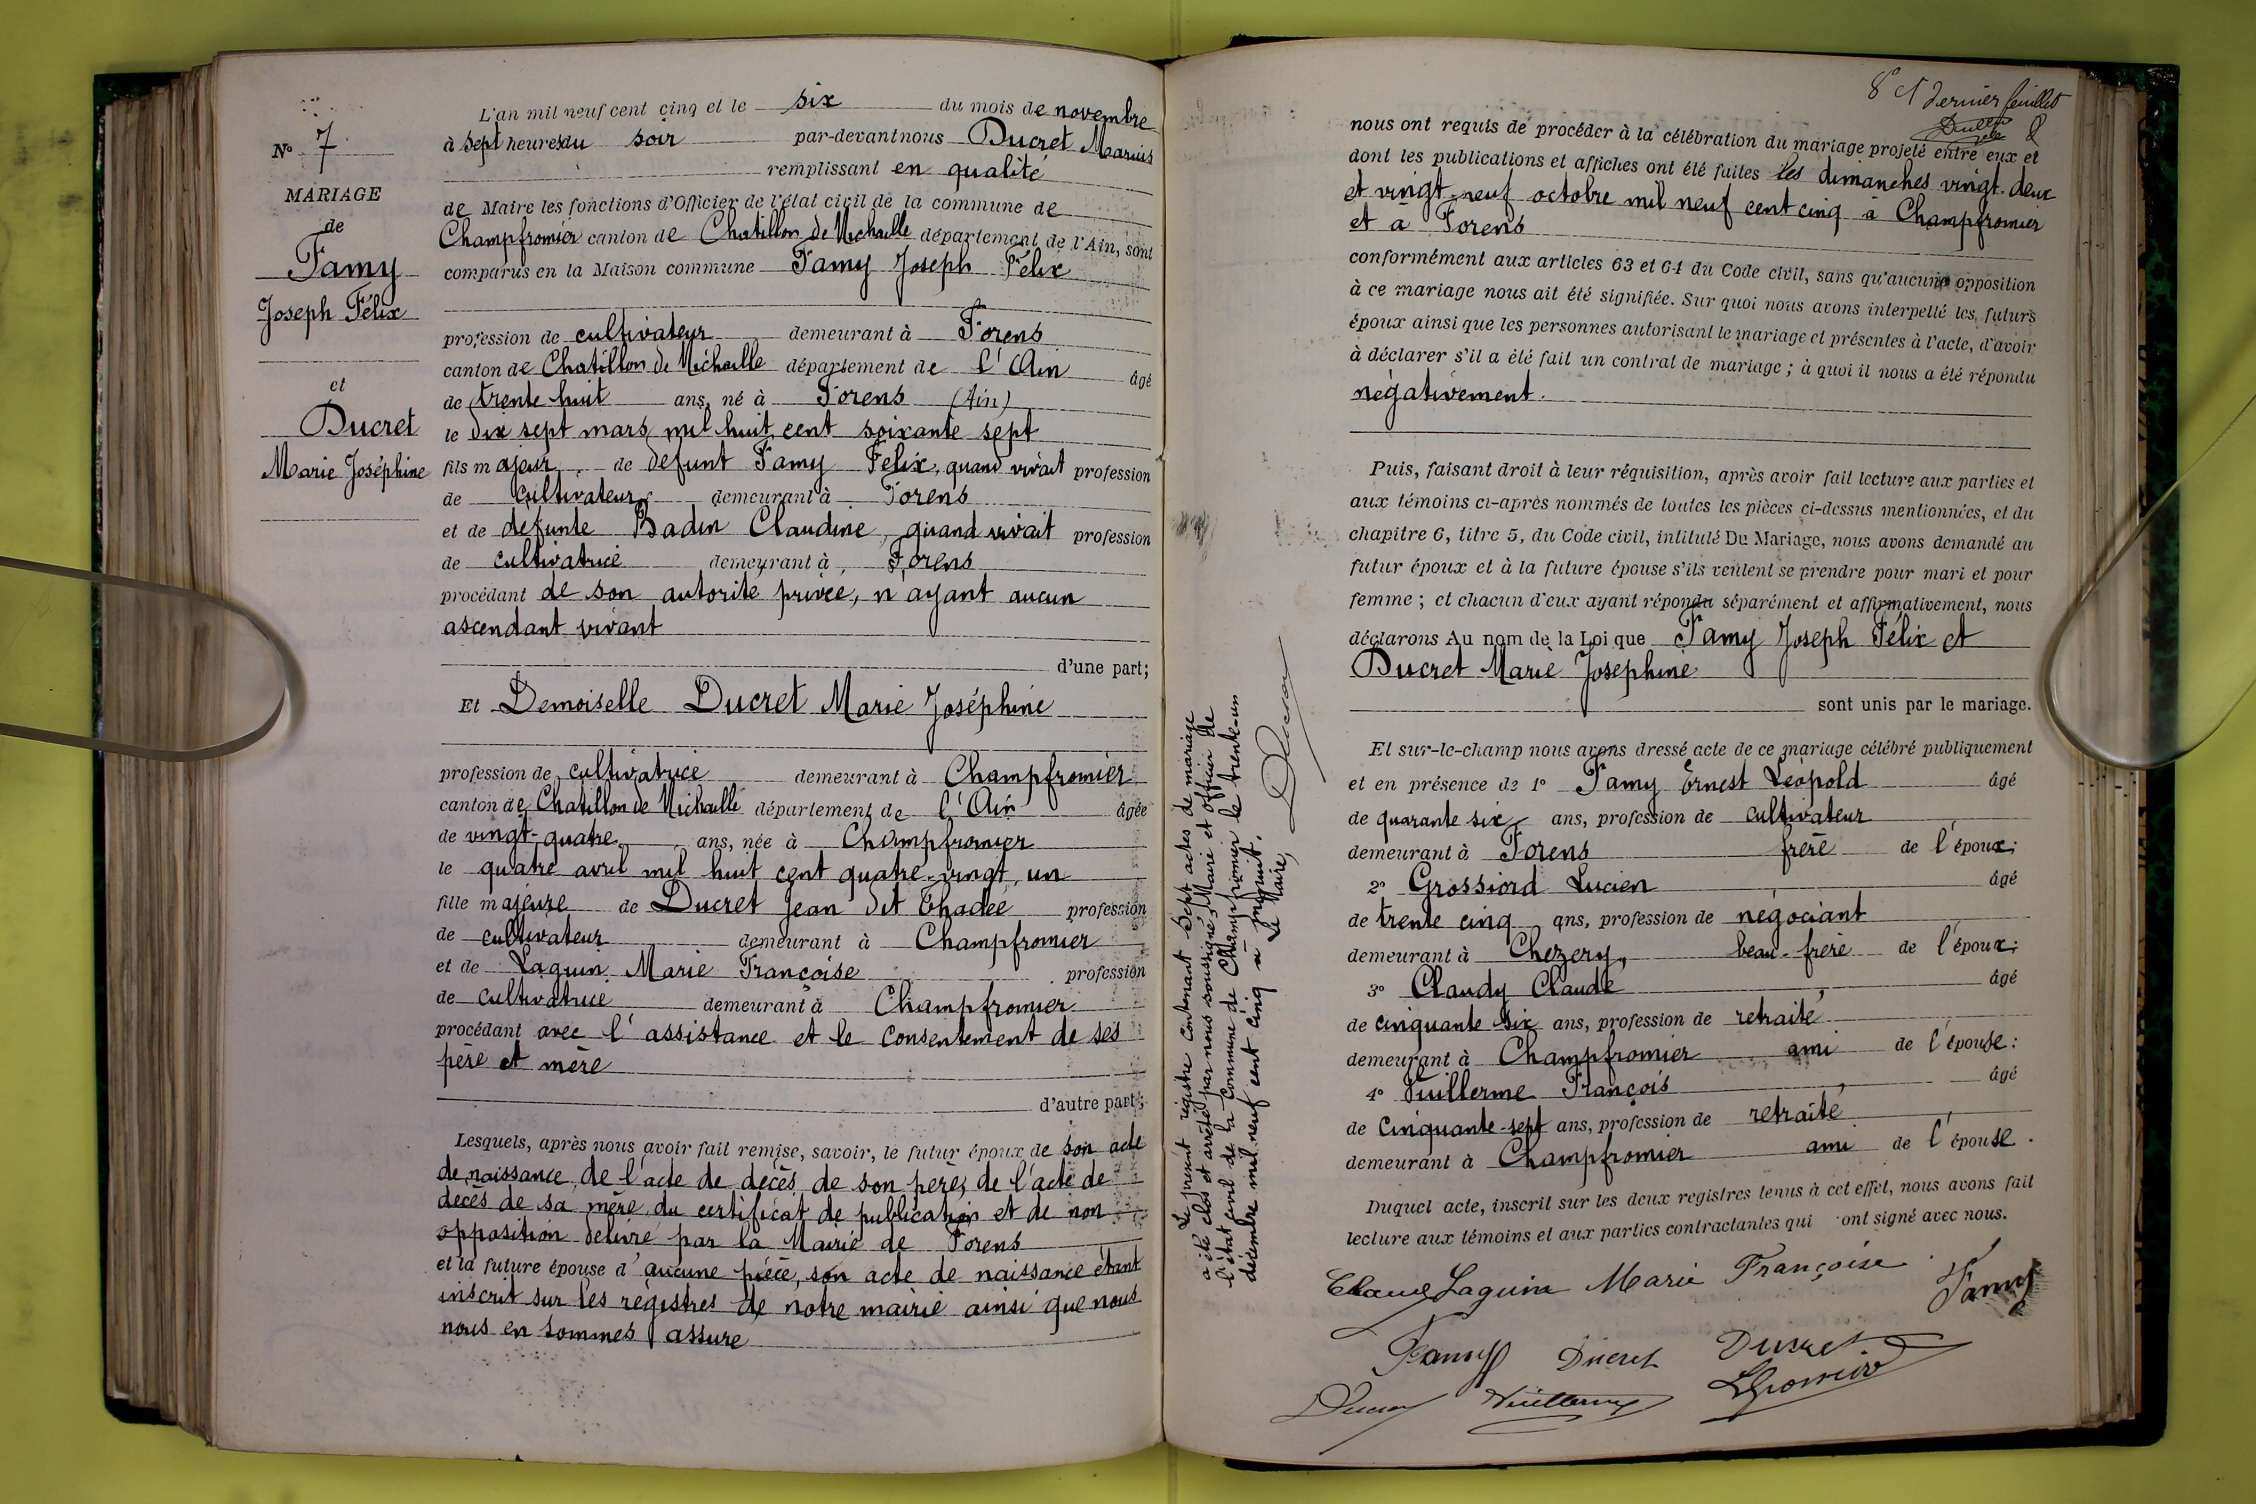 N° 7
MARIAGE
de
Famy
Joseph Félix
et
Ducret
Marie Joséphine
L'an mil neuf cent cinq et le six du mois de novembre
à sept heures du soir par-devant nous Ducret Marius
remplissant en qualité
de Maire les fonctions d'Officier de l'état civil de la commune de
Champfromier canton de Chatillon de Michaille département de l'Ain, sont
comparus en la Maison commune Famy Joseph Félix
profession de cultivateur demeurant à Forens
canton de Chatillon de Michaille département de l'Ain âgé
de trente huit ans, né à Forens (Ain)
le dix sept mars mil huit cent soixante sept
fils majeur de defunt Famy Felix, quand vivait profession
de cultivateur demeurant à Forens
et de defunte Badin Claudine, quand vivait profession
de cultivatrice demeurant à Forens
procédant de son autorité privée, n'ayant aucun
ascendant vivant
d'une part;
Et Demoiselle Ducret Marie Joséphine
profession de cultivatrice demeurant à Champfromier
canton de Chatillon de Michaille département de l'Ain âgée
de vingt-quatre ans, née à Champfromier
le quatre avril mil huit cent quatre-vingt, un
fille majeure de Ducret Jean dit Thadée profession
de cultivateur demeurant à Champfromier
et de Laguin Marie Françoise profession
de cultivatrice demeurant à Champfromier
procédant avec l'assistance et le consentement de ses
père et mère
d'autre part;
Lesquels, après nous avoir fait remise, savoir, le futur époux de son acte
de naissance, de l'acte de décès de son père, de l'acte de
décès de sa mère, du certificat de publication et de non
opposition délivré par la Mairie de Forens
et la future épouse d'aucune pièce, son acte de naissance étant
inscrit sur les registres de notre mairie ainsi que nous
nous en sommes assure
Le présent registre contenant sept actes de mariage
a été clos et arrêté par nous soussigné, Maire et officier de
l'état civil de la Commune de Champfromier le trente-un
décembre mil neuf cent cinq à minuit.
Le Maire,
Ducret
8e et dernier feuillet
nous ont requis de procéder à la célébration du mariage projeté entre eux et
dont les publications et affiches ont été faites les dimanches vingt-deux
et vingt-neuf octobre mil neuf cent cinq à Champfromier
et à Forens
conformément aux articles 63 et 64 du Code civil, sans qu'aucune opposition
à ce mariage nous ait été signifiée. Sur quoi nous avons interpellé les futurs
époux ainsi que les personnes autorisant le mariage et présentes à l'acte, d'avoir
à déclarer s'il a été fait un contrat de mariage; à quoi il nous a été répondu
négativement.
Puis, faisant droit à leur réquisition, après avoir fait lecture aux parties et
aux témoins ci-après nommés de toutes les pièces ci-dessus mentionnées, et du
chapitre 6, titre 5, du Code civil, intitulé Du Mariage, nous avons demandé au
futur époux et à la future épouse s'ils veulent se prendre pour mari et pour
femme; et chacun d'eux ayant répondu séparément et affirmativement, nous
déclarons Au nom de la Loi que Famy Joseph Félix et
Ducret Marie Josephine
sont unis par le mariage.
Et sur-le-champ nous avons dressé acte de ce mariage célébré publiquement
et en présence de 1° Famy Ernest Léopold âgé
de quarante six ans, profession de cultivateur
demeurant à Forens frère de l'époux;
2° Grossiord Lucien âgé
de trente cinq ans, profession de négociant
demeurant à Chezery, beau-frère de l'époux;
3° Claudy Claude âgé
de cinquante six ans, profession de retraité
demeurant à Champfromier ami de l'épouse:
4° Vuillerme François âgé
de cinquante-sept ans, profession de retraité
demeurant à Champfromier ami de l'épouse.
Duquel acte, inscrit sur les deux registres tenus à cet effet, nous avons fait
lecture aux témoins et aux parties contractantes qui ont signé avec nous.
Laguin Marie Françoise Famy
Famy Ducret Ducret
Ducret Vuillerme LGrossiord